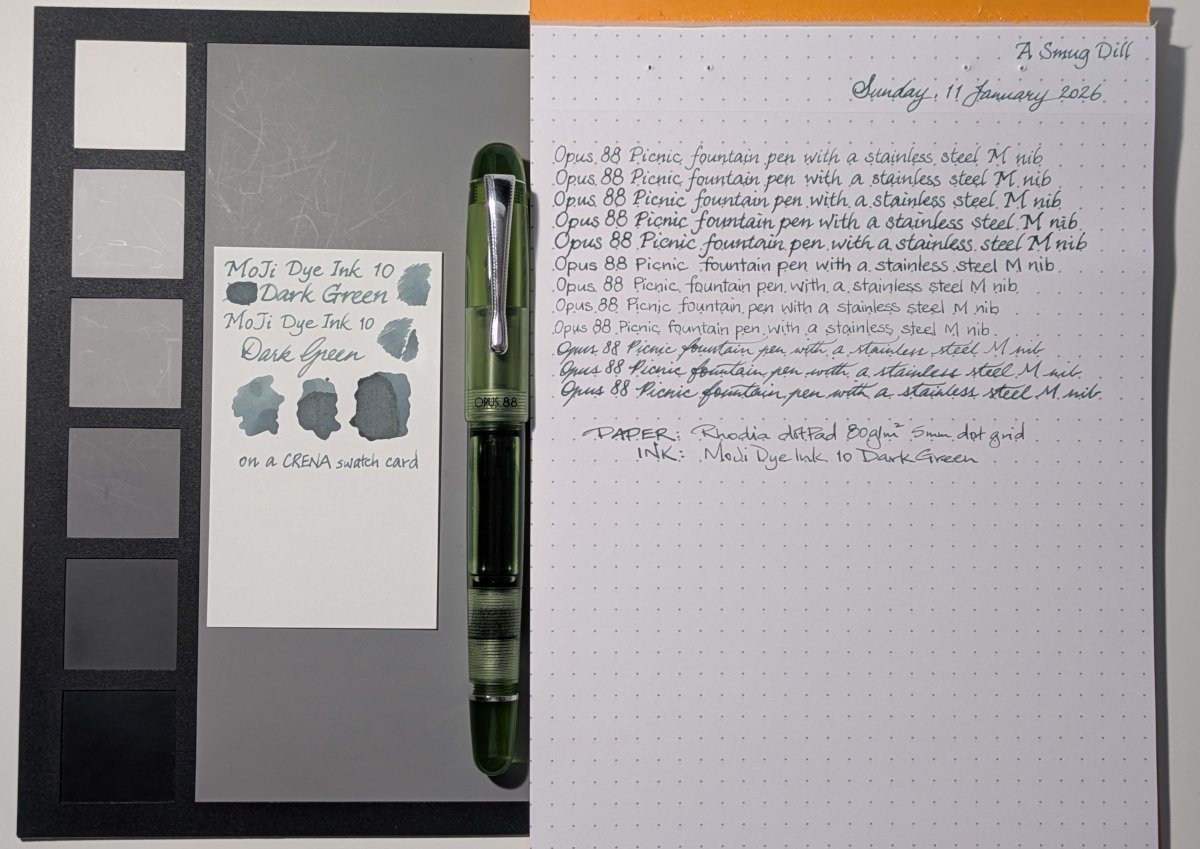 MoJi Dye Ink 10
Dark Green
MoJi Dye Ink 10
Dark Green
on a CRENA swatch card
OPUS 88
A Smug Dill
Sunday, 11 January 2026
Opus 88 Picnic fountain pen with a stainless steel M nib
Opus 88 Picnic fountain pen with a stainless steel M nib
Opus 88 Picnic fountain pen with a stainless steel M nib
Opus 88 Picnic fountain pen with a stainless steel M nib
Opus 88 Picnic fountain pen with a stainless steel M nib
Opus 88 Picnic fountain pen with a stainless steel M nib
Opus 88 Picnic fountain pen with a stainless steel M nib
Opus 88 Picnic fountain pen with a stainless steel M nib
Opus 88 Picnic fountain pen with a stainless steel M nib
Opus 88 Picnic fountain pen with a stainless steel M nib
Opus 88 Picnic fountain pen with a stainless steel M nib
Opus 88 Picnic fountain pen with a stainless steel M nib
PAPER: Rhodia dotPad 80g/m² 5mm dot grid
INK: MoJi Dye Ink 10 Dark Green